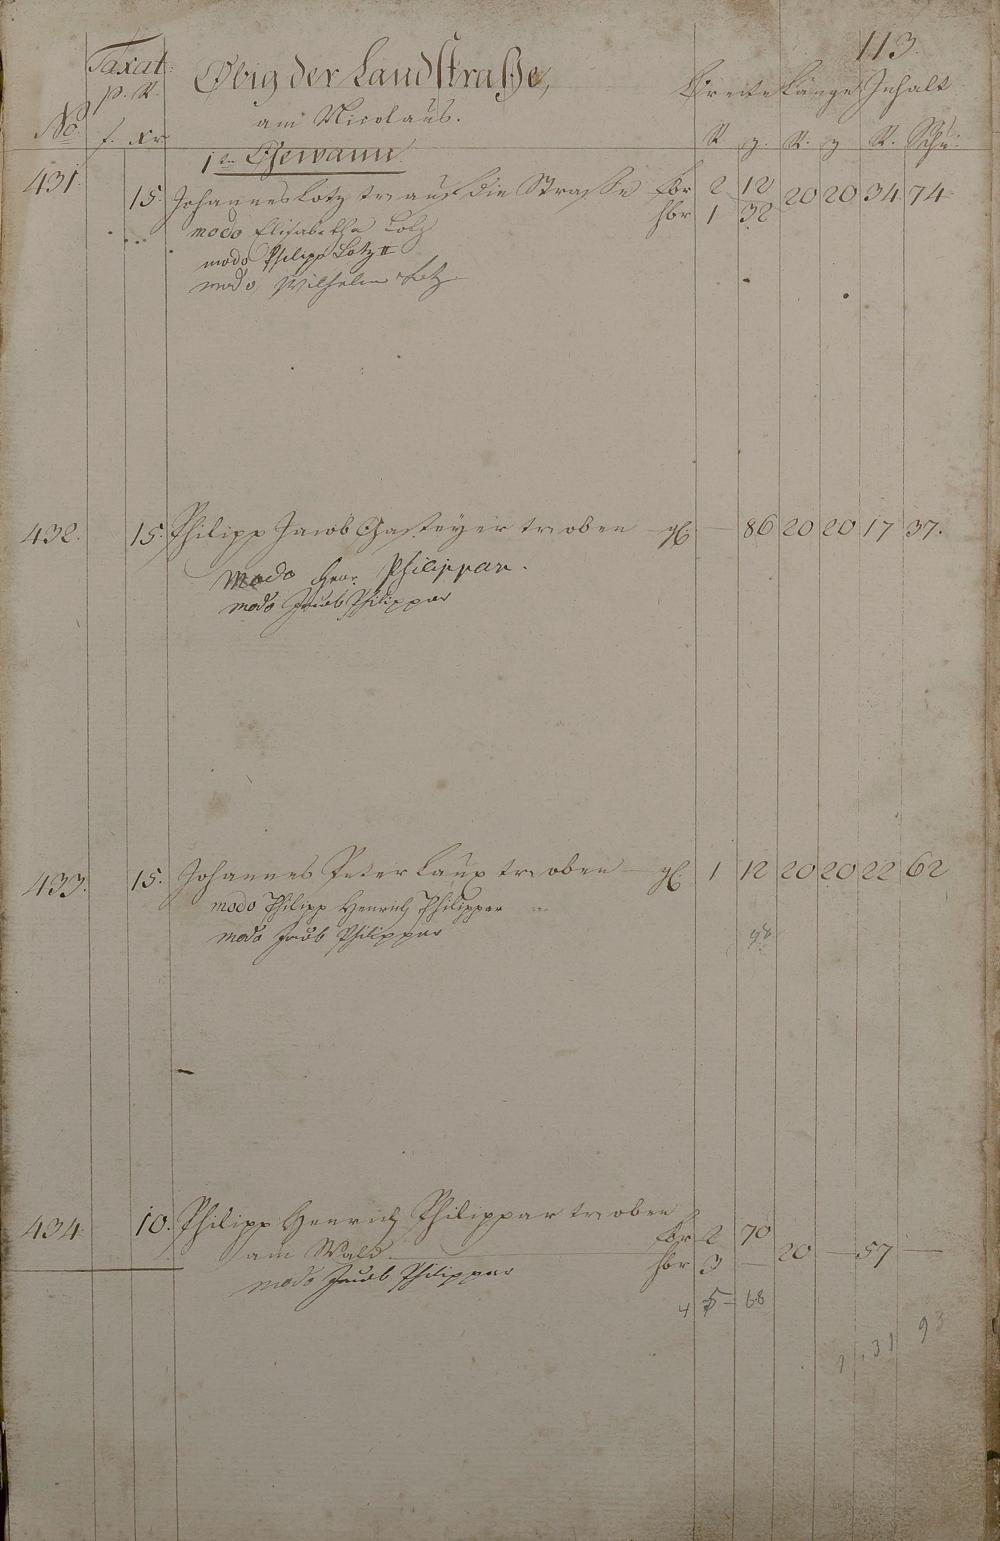 113.
Taxat: Obig der Landstraße, Breite Länge Inhalt
p. R.
am Nicolaus.
No. f. xr R. z. R. z R. Schu:
1te Gewann.
431. 15. Johannes Lotz tr. auf die Straße 2 12 20 20 34 74
hbr 1 32
modo Elisabetha Lotz
modo Philipp Lotz II
modo Wilhelm Lotz
432. 15. Philipp Jacob Gasteyer tr. oben gl. — 86 20 20 17 37.
modo Philippar.
modo Jacob Philippar
433. 15. Johannes Peter Laux tr. oben gl. 1 12 20 20 22 62
modo Philipp Henrich Philippar
modo Jacob Philippar
98
434 10. Philipp Henrich Philippar tr. oben
am Wald. 2 70 20 — 57 —
hbr 3 —
modo Jacob Philippar
4 5 – 68
1. 31 93